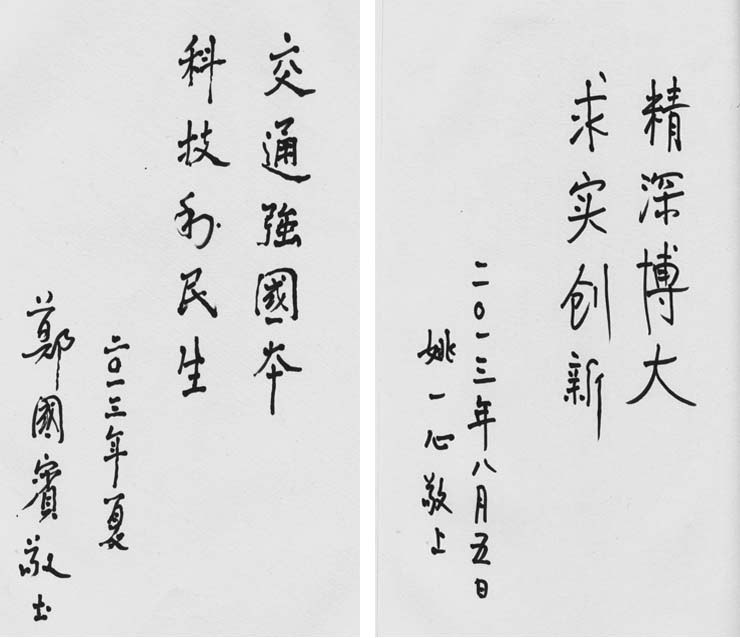 交通強國本
科技利民生
二〇一三年夏
鄭國賓敬
精深博大
求实创新
二〇一三年八月五日
姚一心敬上